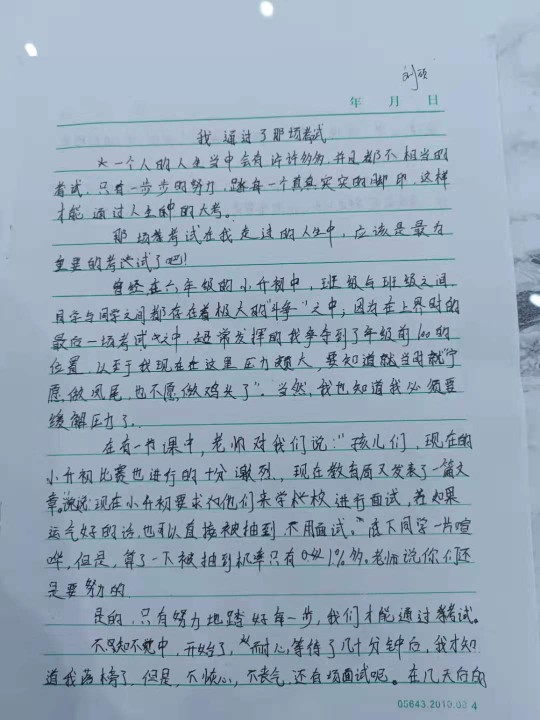 刘硕
年 月 日
我通过了那场考试
一个人的人生当中会有许许多多，并且都不相当的
考试，只有一步步的努力，踩每一个真真实实的脚印，这样
才能通过人生中的大考。
那场考试在我走过的人生中，应该是最为
重要的考试了吧！
曾经在六年级的小升初中，班级与班级之间，
同学与同学之间都存在着极大的“斗争”之中；因为在上界时的
最后一场考试之中，超常发挥的我争夺到了年级前100的
位置，以至于我现在在这里压力颇大，要知道就当时就“宁
愿做凤尾，也不愿做鸡头了”。当然，我也知道我必须要
缓解压力了。
在有一节课中，老师对我们说：“孩儿们，现在的
小升初比赛也进行的十分激烈，现在教育局又发来了一篇文
章，说现在小升初要求他们来学校进行面试，若如果
运气好的话，也可以直接被抽到，不用面试。”底下同学一片喧
哗，但是，算了一下被抽到机率只有1%多，老师说你们还
是要努力的
是的，只有努力地踏好每一步，我们才能通过考试。
不知不觉中，开始了，耐心等待了几十分钟后，我才知
道我落榜了，但是，不恢心，不丧气，还有场面试呢。在几天后的
05643.2010.03 4